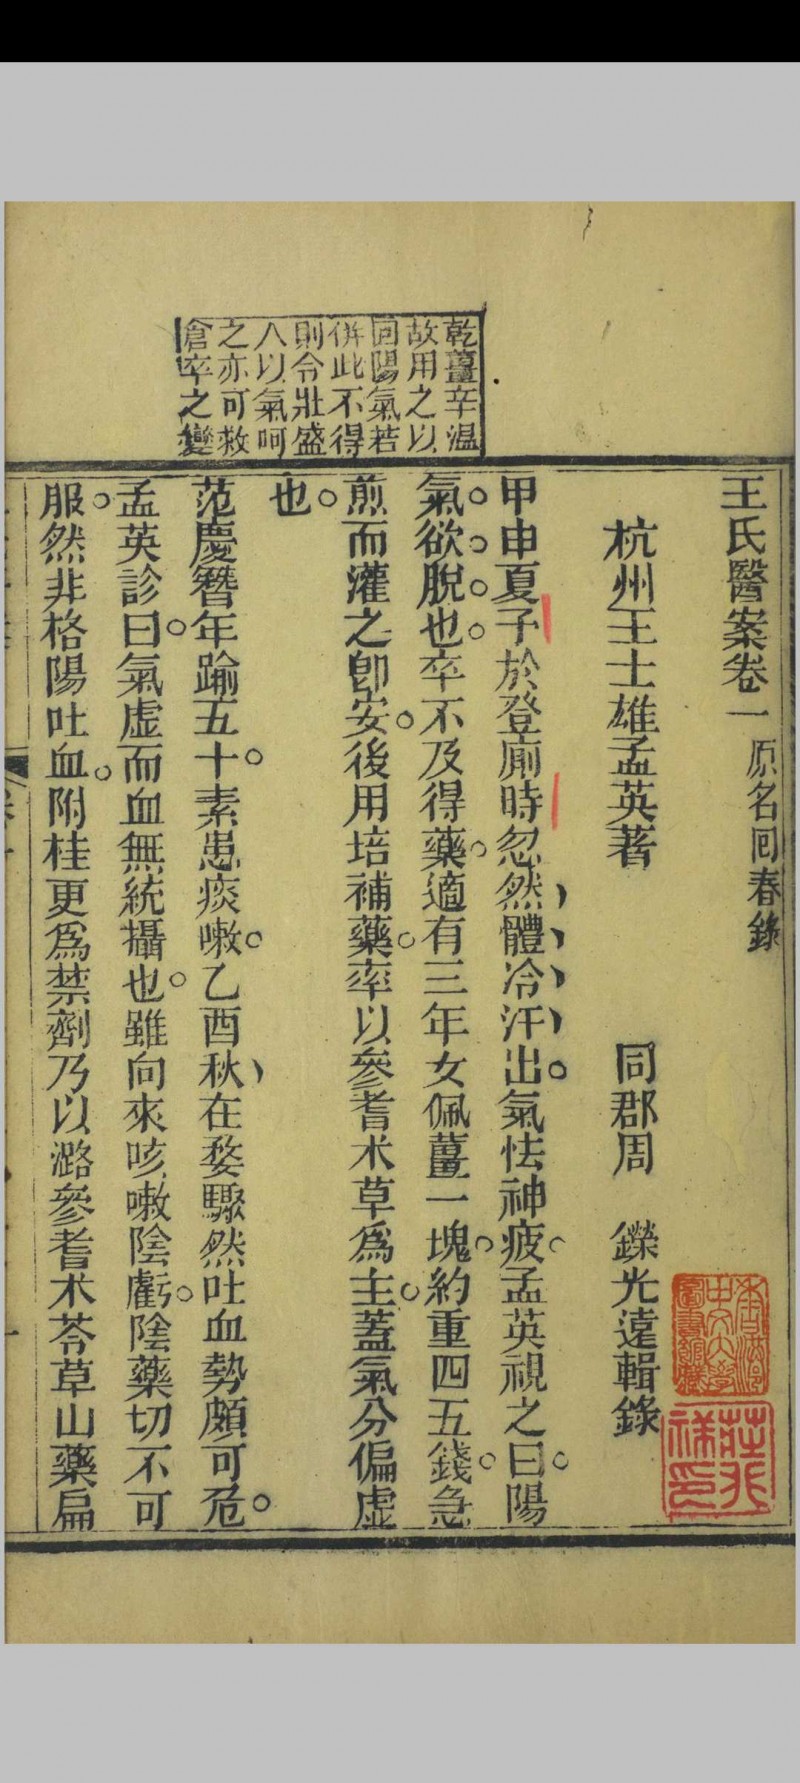 王氏醫案卷一 原名回春錄
杭州王士雄孟英著 同郡周 鑅光遠輯錄
甲申夏予於登廁時忽然體冷汗出氣怯神疲孟英視之曰陽
氣欲脫也卒不及得藥適有三年女佩薑一塊約重四五錢急
煎而灌之卽安後用培補藥率以參耆朮草爲主蓋氣分偏虛
也
范慶簪年踰五十素患痰嗽乙酉秋在婺驟然吐血勢頗可危
孟英診曰氣虛而血無統攝也雖向來咳嗽陰虧陰藥切不可
服然非格陽吐血附桂更爲禁劑乃以潞參耆朮苓草山藥扁
乾薑辛溫
故用之以
回陽氣若
倂此不得
則令壯盛
人以氣呵
之亦可救
倉卒之變
香港
中文大學
圖書館藏